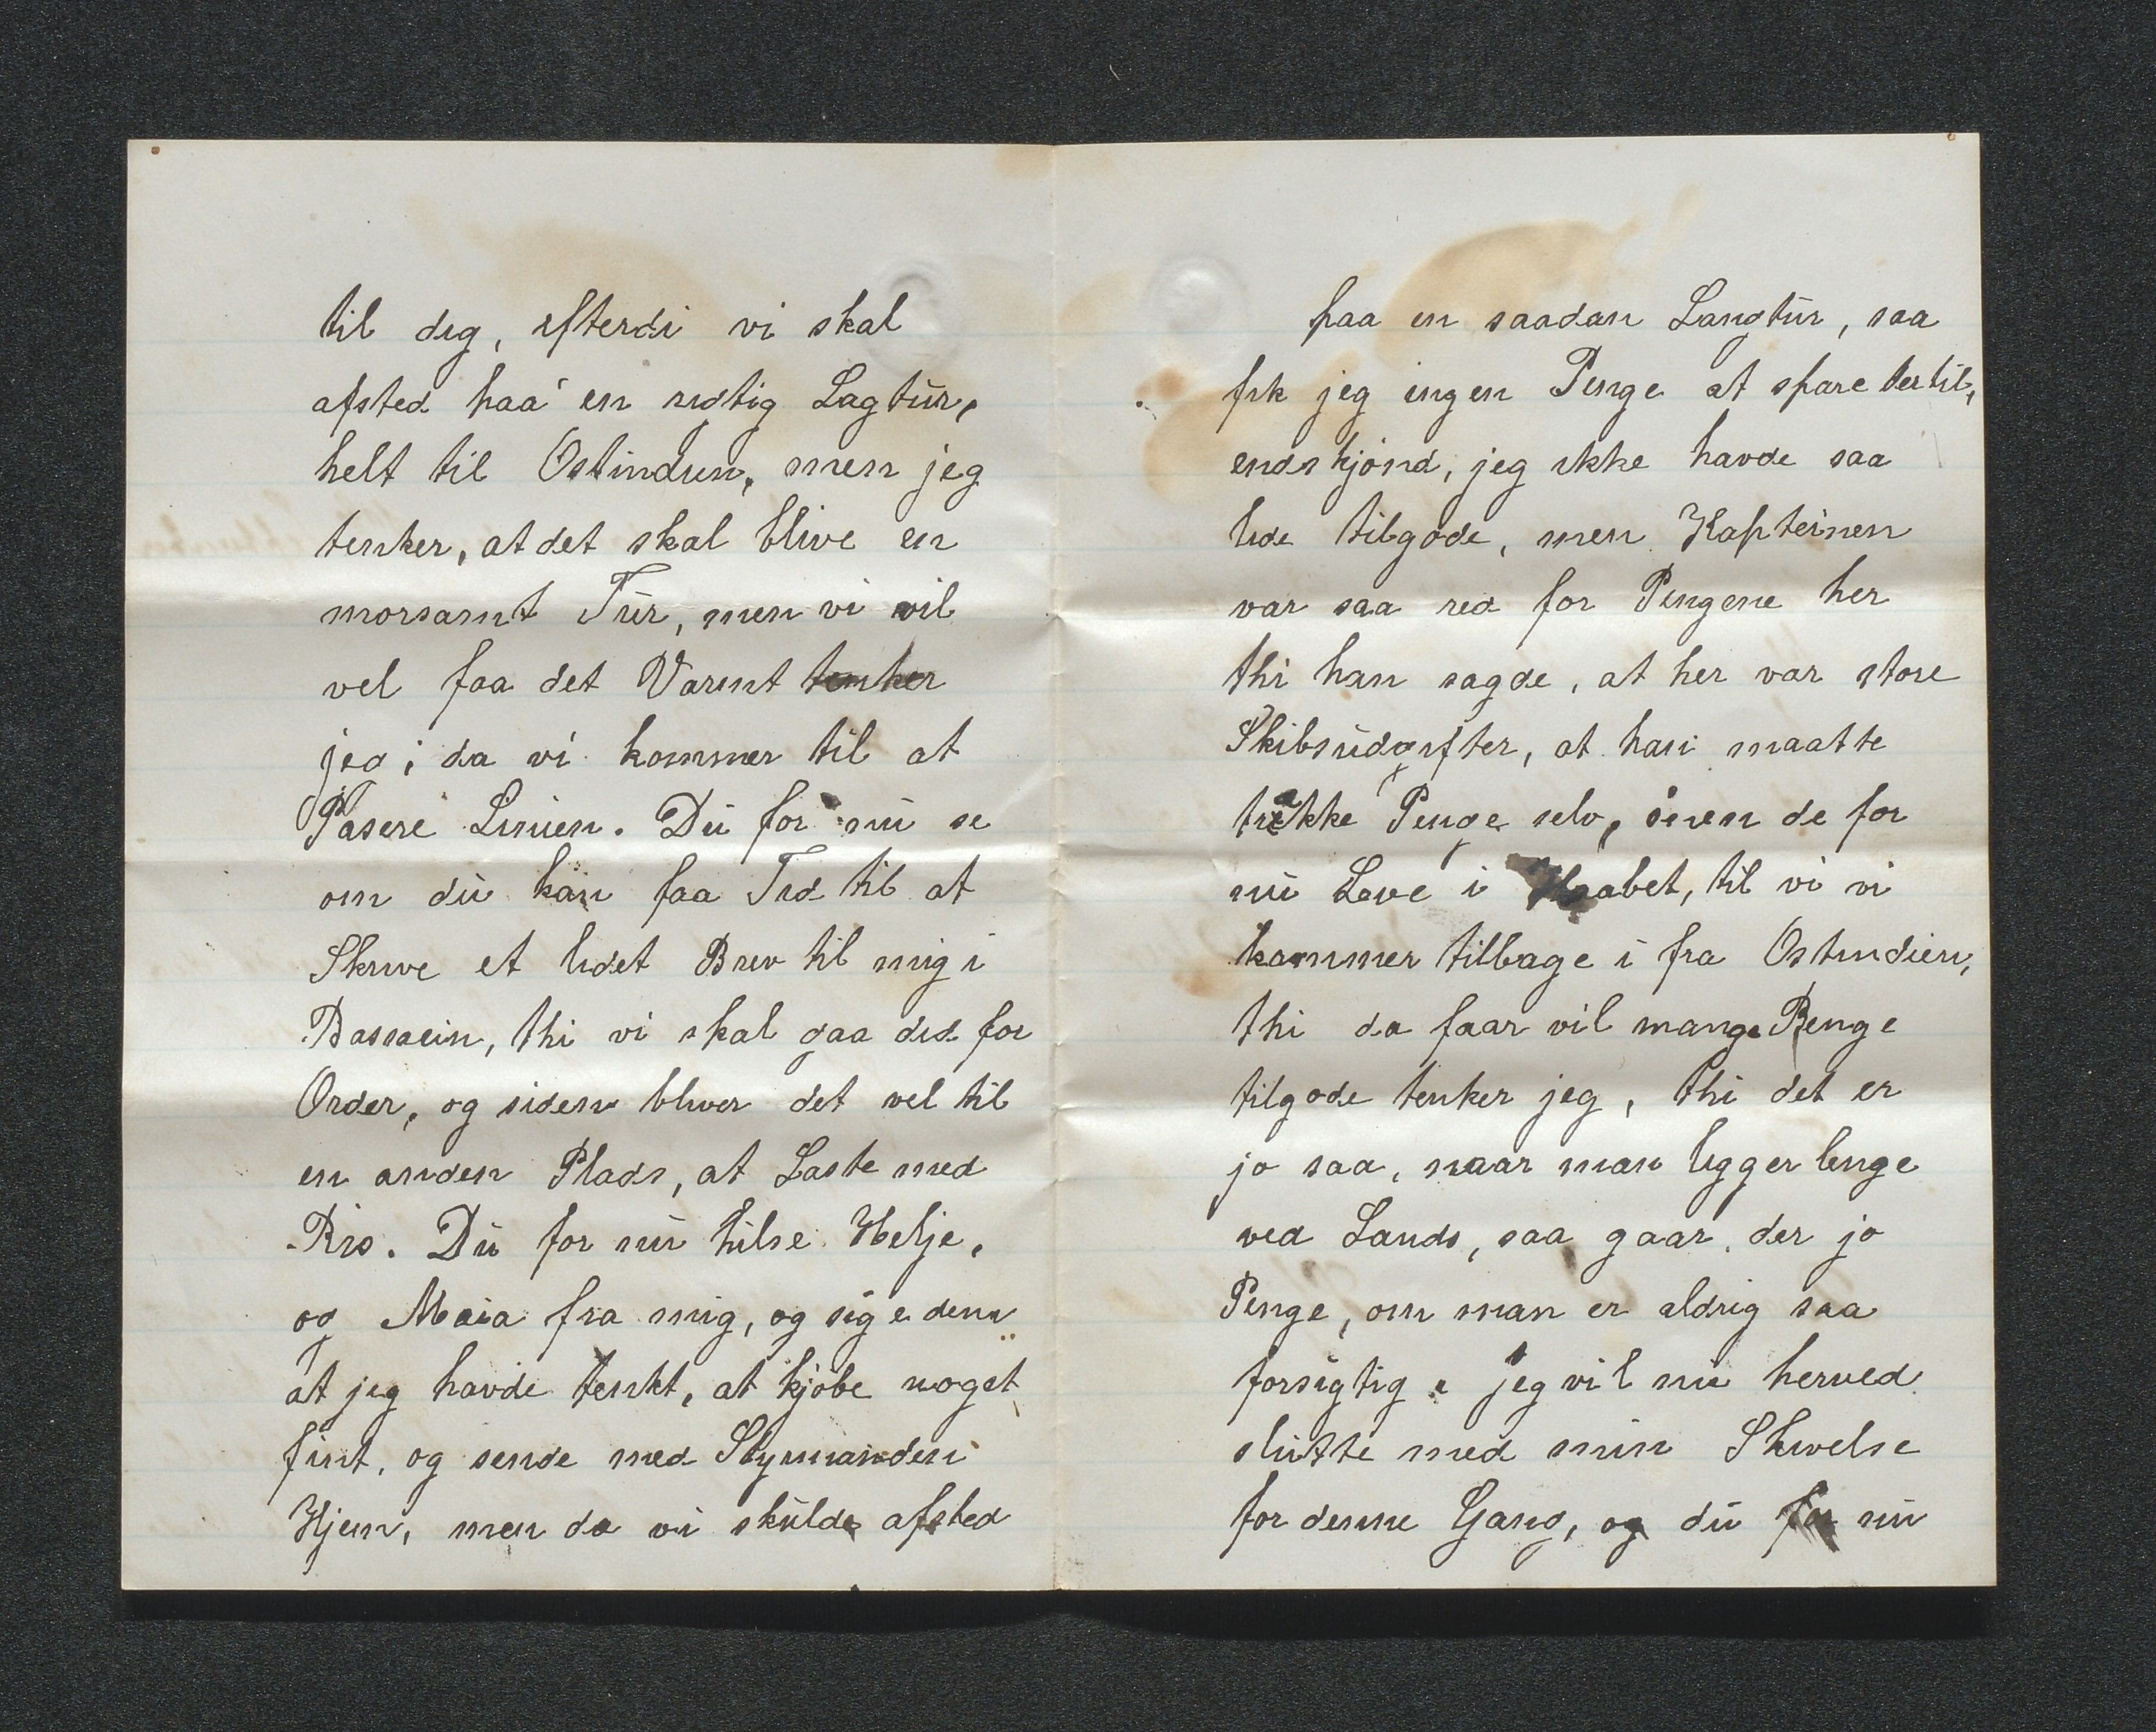 til dig, efterdi vi skal
afsted paa en rigtig Lagtur,
helt til Ostindien, men jeg
tenker, at det skal blive en
morsamt Tur, men vi vil
vel faa det Varmt tenker
jeg, da vi kommer til at
Pasere Linien. Du for nu se
om du kan faa Tid til at
Skrive et lidet Brev til mig i
Bassein, thi vi skal gaa did for
Order, og siden bliver det vel til
en anden Plads, at Laste med
Ris. Du for nu hilse Helje,
og Maia fra mig, og sige dem
at jeg havde tenkt, at kjøbe noget
fint, og sende med Styrmanden
Hjem, men da vi skulde afsted
paa en saadan Langtur, saa
fik jeg ingen Penge at spare dertil,
endskjønd, jeg ikke havde saa
lide tilgode, men Kapteinen
var saa red for Pengene her
thi han sagde, at her var store
Skibsudgifter, at han maatte
trække Penge selv, men de for
nu Leve i Haabet, til vi vi
kommer tilbage i fra Ostindien,
thi da faar vil mange Penge
tilgode tenker jeg, thi det er
jo saa, naar man ligger lenge
ved Lands, saa gaar der jo
Penge, om man er aldrig saa
forsigtig. jeg vil nu herved
slutte med min Skivelse
for denne Gang, og du for nu